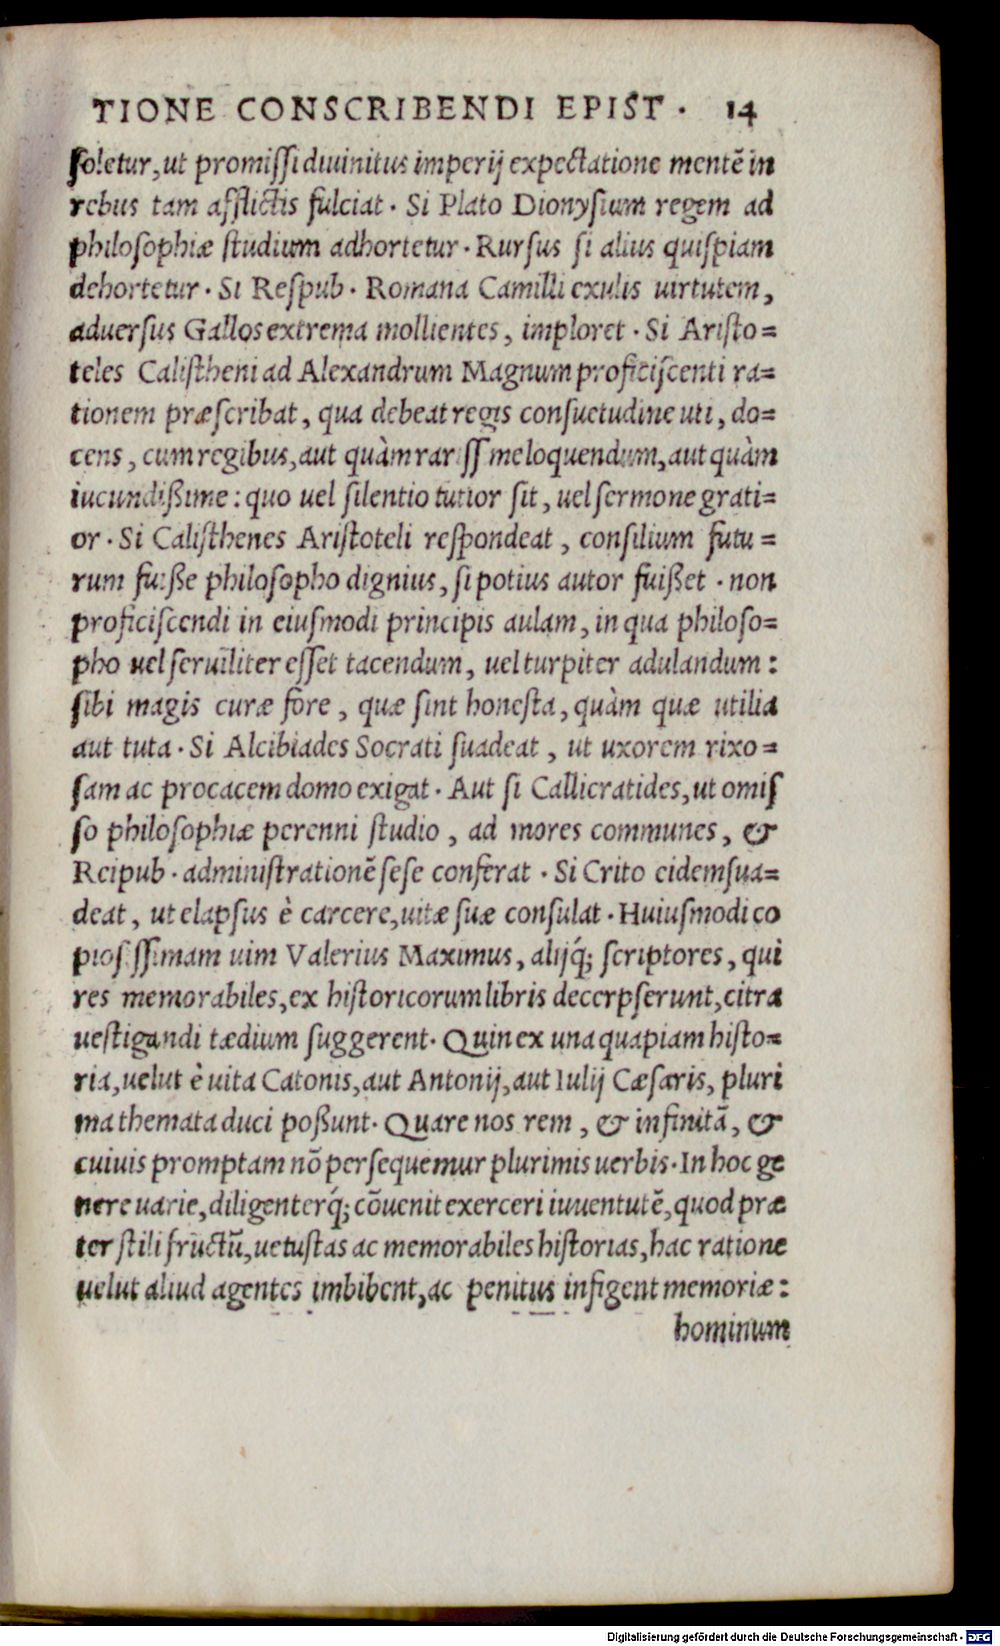 TIONE CONSCRIBENDI EPIST. 14
soletur, ut promissi diuinitus imperij expectatione mentẽ in
rebus tam afflictis fulciat. Si Plato Dionysium regem ad
philosophiæ studium adhortetur. Rursus si alius quispiam
dehortetur. Si Respub. Romana Camilli exulis uirtutem,
aduersus Gallos extrema mollientes, imploret. Si Aristo=
teles Calistheni ad Alexandrum Magnum proficiscenti ra=
tionem præscribat, qua debeat regis consuetudine uti, do=
cens, cum regibus, aut quàm rarissime loquendum, aut quàm
iucundißime: quo uel silentio tutior sit, uel sermone grati=
or. Si Calisthenes Aristoteli respondeat, consilium futu=
rum fuiße philosopho dignius, si potius autor fuißet. non
proficiscendi in eiusmodi principis aulam, in qua philoso=
pho uel seruiliter esset tacendum, uel turpiter adulandum:
sibi magis curæ fore, quæ sint honesta, quàm quæ utilia
aut tuta. Si Alcibiades Socrati suadeat, ut uxorem rixo=
sam ac procacem domo exigat. Aut si Callicratides, ut omis
so philosophiæ perenni studio, ad mores communes, &
Reipub. administrationẽ sese conferat. Si Crito eidem sua=
deat, ut elapsus è carcere, uitæ suæ consulat. Huiusmodi co
piosissimam uim Valerius Maximus, alijq́; scriptores, qui
res memorabiles, ex historicorum libris decerpserunt, citra
uestigandi tædium suggerent. Quin ex una quapiam histo=
ria, uelut è uita Catonis, aut Antonij, aut Iulij Cæsaris, pluri
ma themata duci poßunt. Quare nos rem, & infinitã, &
cuiuis promptam nõ persequemur plurimis uerbis. In hoc ge
nere uarie, diligenterq́; cõuenit exerceri iuuentutẽ, quod præ
ter stili fructũ, uetustas ac memorabiles historias, hac ratione
uelut aliud agentes imbibent, ac penitus infigent memoriæ:
hominum
Digitalisierung gefördert durch die Deutsche Forschungsgemeinschaft - DFG